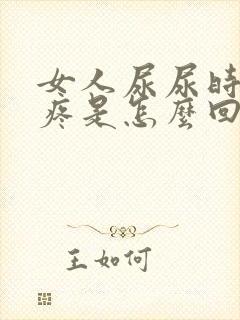 女人尿尿时
疼是怎麼回
王如何